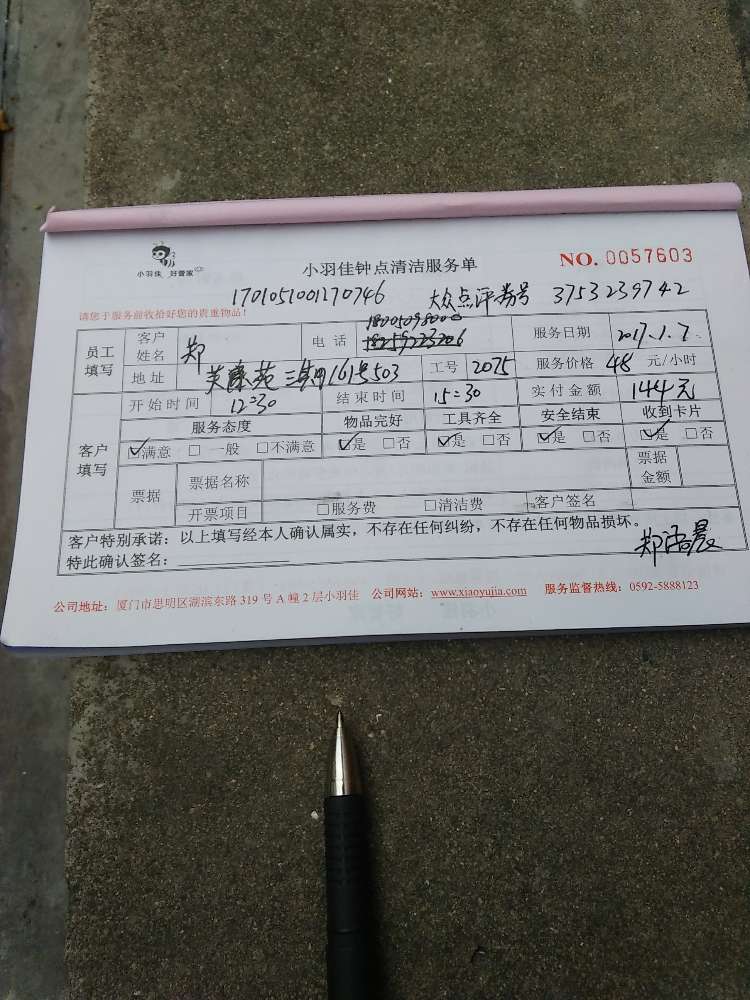 小羽佳 好管家
小羽佳钟点清洁服务单
NO. 0057603
1701051001270746 大众点评券号 3753239742
请您于服务前收拾好您的贵重物品!
员工填写 客户姓名 郑 电话 服务日期 2017.1.7
地址 三期161号503 工号 2075 服务价格 48 元/小时
开始时间 12:30 结束时间 15:30 实付金额 144元
客户填写 服务态度 物品完好 工具齐全 安全结束 收到卡片
☑满意 □ 一般 □不满意 ☑是 □否 ☑是 □否 ☑是 □否 ☑是 □否
票据 票据名称 票据金额
开票项目 □服务费 □清洁费 客户签名
客户特别承诺：以上填写经本人确认属实，不存在任何纠纷，不存在任何物品损坏。
特此确认签名：
公司地址：厦门市思明区湖滨东路 319 号 A 幢 2 层小羽佳 公司网站：www.xiaoyujia.com 服务监督热线：0592-5888123